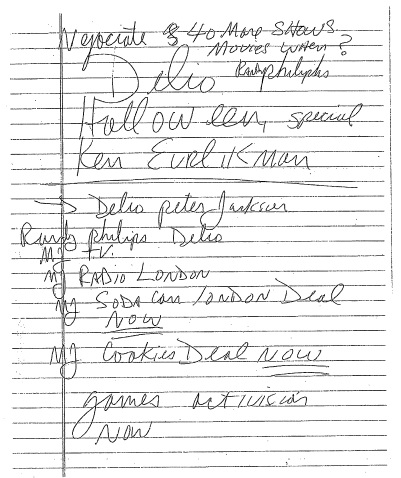 Negociate 40 More Shows
Movies When?
Delio Randyphilips
Halloween, special
Ken Evrlikman
Delio peter Jackson
Randy philips Delio
MJ TV.
MJ RADIO LONDON
MJ SODA Can LONDON Deal
NOW
MJ Cookies Deal NOW
games activision
Now